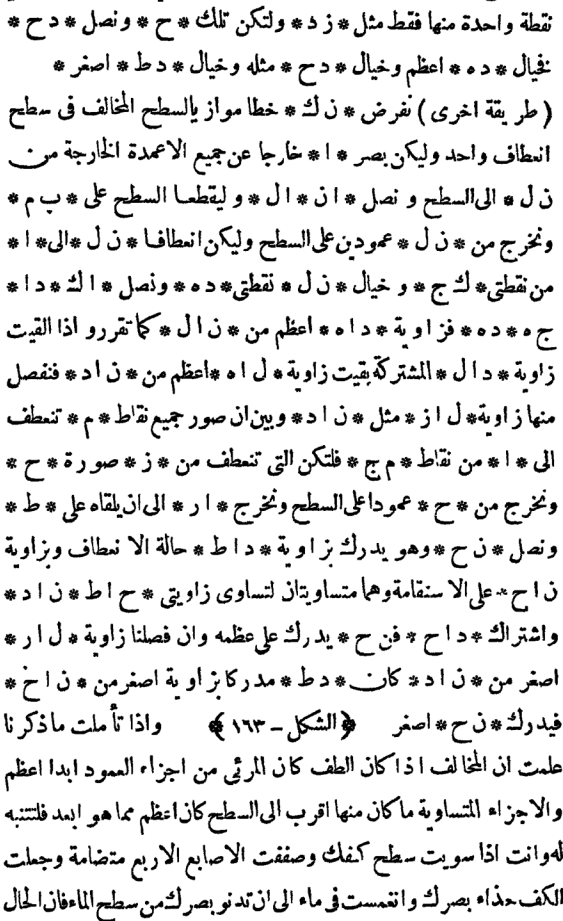 نقطة واحدة منها فقط مثل * ز د * ولتكن تلك * ح * ونصل * د ح *
فخيال * د ه * اعظم وخيال * د ح * مثله وخيال * د ط * اصغر *
( طريقة اخرى ) نفرض * ن ل * خطا موازيا للسطح المخالف فى سطح
انعطاف واحد وليكن بصر * ا * خارجا عن جميع الاعمدة الخارجة من
ن ل * الى السطح و نصل * ا ن * ا ل * و ليقطعا السطح على * ب م *
ونخرج من * ن ل * عمودين على السطح وليكن انعطافا * ن ل * الى * ا *
من نقطتى * ك ج * و خيال * ن ل * نقطتى * د ه * ونصل * ا ك * د ا *
ج ه * د ه * فزاوية * د ا ه * اعظم من * ن ا ل * كما تقرر و اذا القيت
زاوية * د ا ل * المشتركة بقيت زاوية * ل ا ه * اعظم من * ن ا د * فنفصل
منها زاوية * ل ا ز * مثل * ن ا د * وبين ان صور جميع نقاط * م * تنعطف
الى * ا * من نقاط * م ج * فلتكن التى تنعطف من * ز * صورة * ح *
ونخرج من * ح * عمودا على السطح ونخرج * ا ر * الى ان يلقاه على * ط *
ونصل * ن ح * وهو يدرك بزاوية * د ا ط * حالة الا نعطاف وبزاوية
ن ا ح * على الا ستقامة وهما متساويتان لتساوى زاويتى * ح ا ط * ن ا د *
واشتراك * د ا ح * فن ح * يدرك على عظمه وان فصلنا زاوية * ل ا ر *
اصغر من * ن ا د * كان * د ط * مدركا بزاوية اصغر من * ن ا خ *
فيدرك * ن ح * اصغر ﴿ الشكل – ١٦٣ ﴾ واذا تأملت ماذكرنا
علمت ان المخالف اذا كان الطف كان المرئى من اجزاء العمود ابدا اعظم
والاجزاء المتساوية ماكان منها اقرب الى السطح كان اعظم مما هو ابعد فلتتنبه
له وانت اذا سويت سطح كفك وصففت الاصابع الاربع متضامة وجعلت
الكف حذاء بصرك و انغمست فى ماء الى ان تدنو بصرك من سطح الماء فان الحال